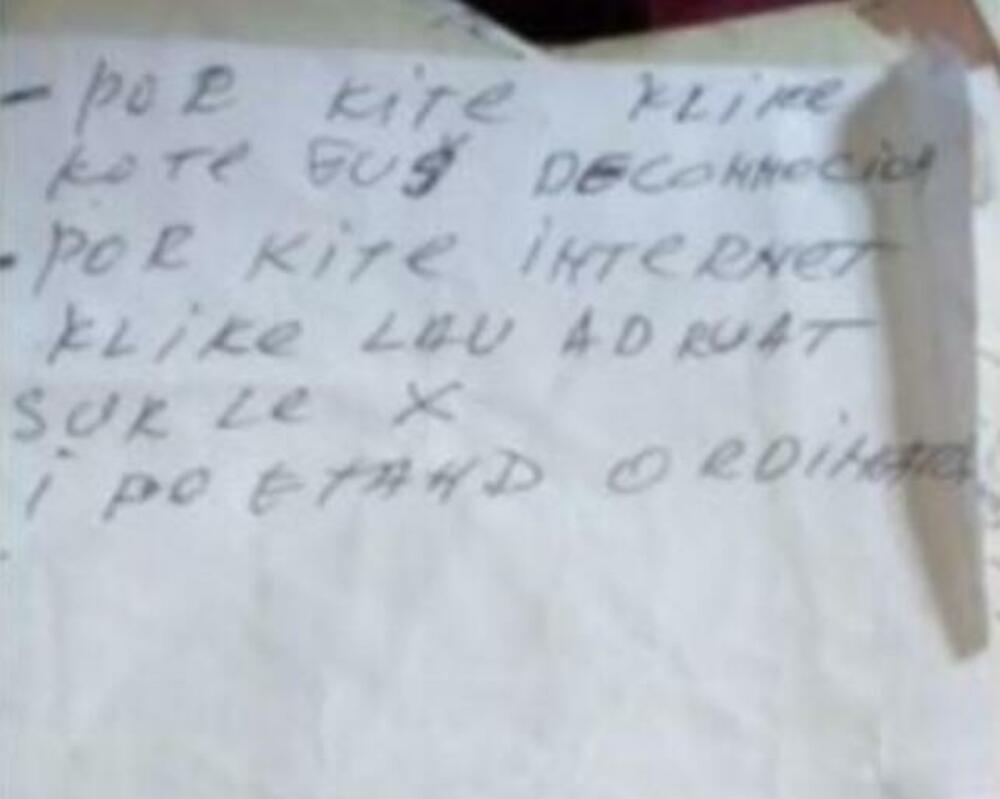 - POR KITE KLIKE
KOTE GUS DECONNOCION
- POR KITE INTERNET
KLIKE LAU ADRUAT
SUR LE X
I PO ETAND ORDINATR